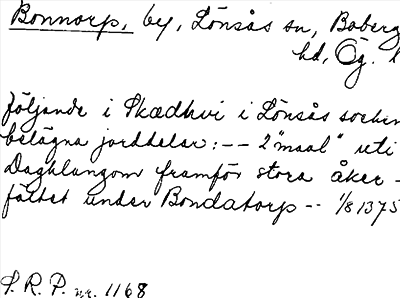 Bonnorp, by, Lönsås sn, Boberg
hd, Ög. l
följande i Skædhvi i Lönsås socken
belägna jorddelar: -- 2 "maal" uti
Dagklangom framför stora åker-
fältet under Bondatorp -- 1/8 1375
S. R. P. nr. 1168